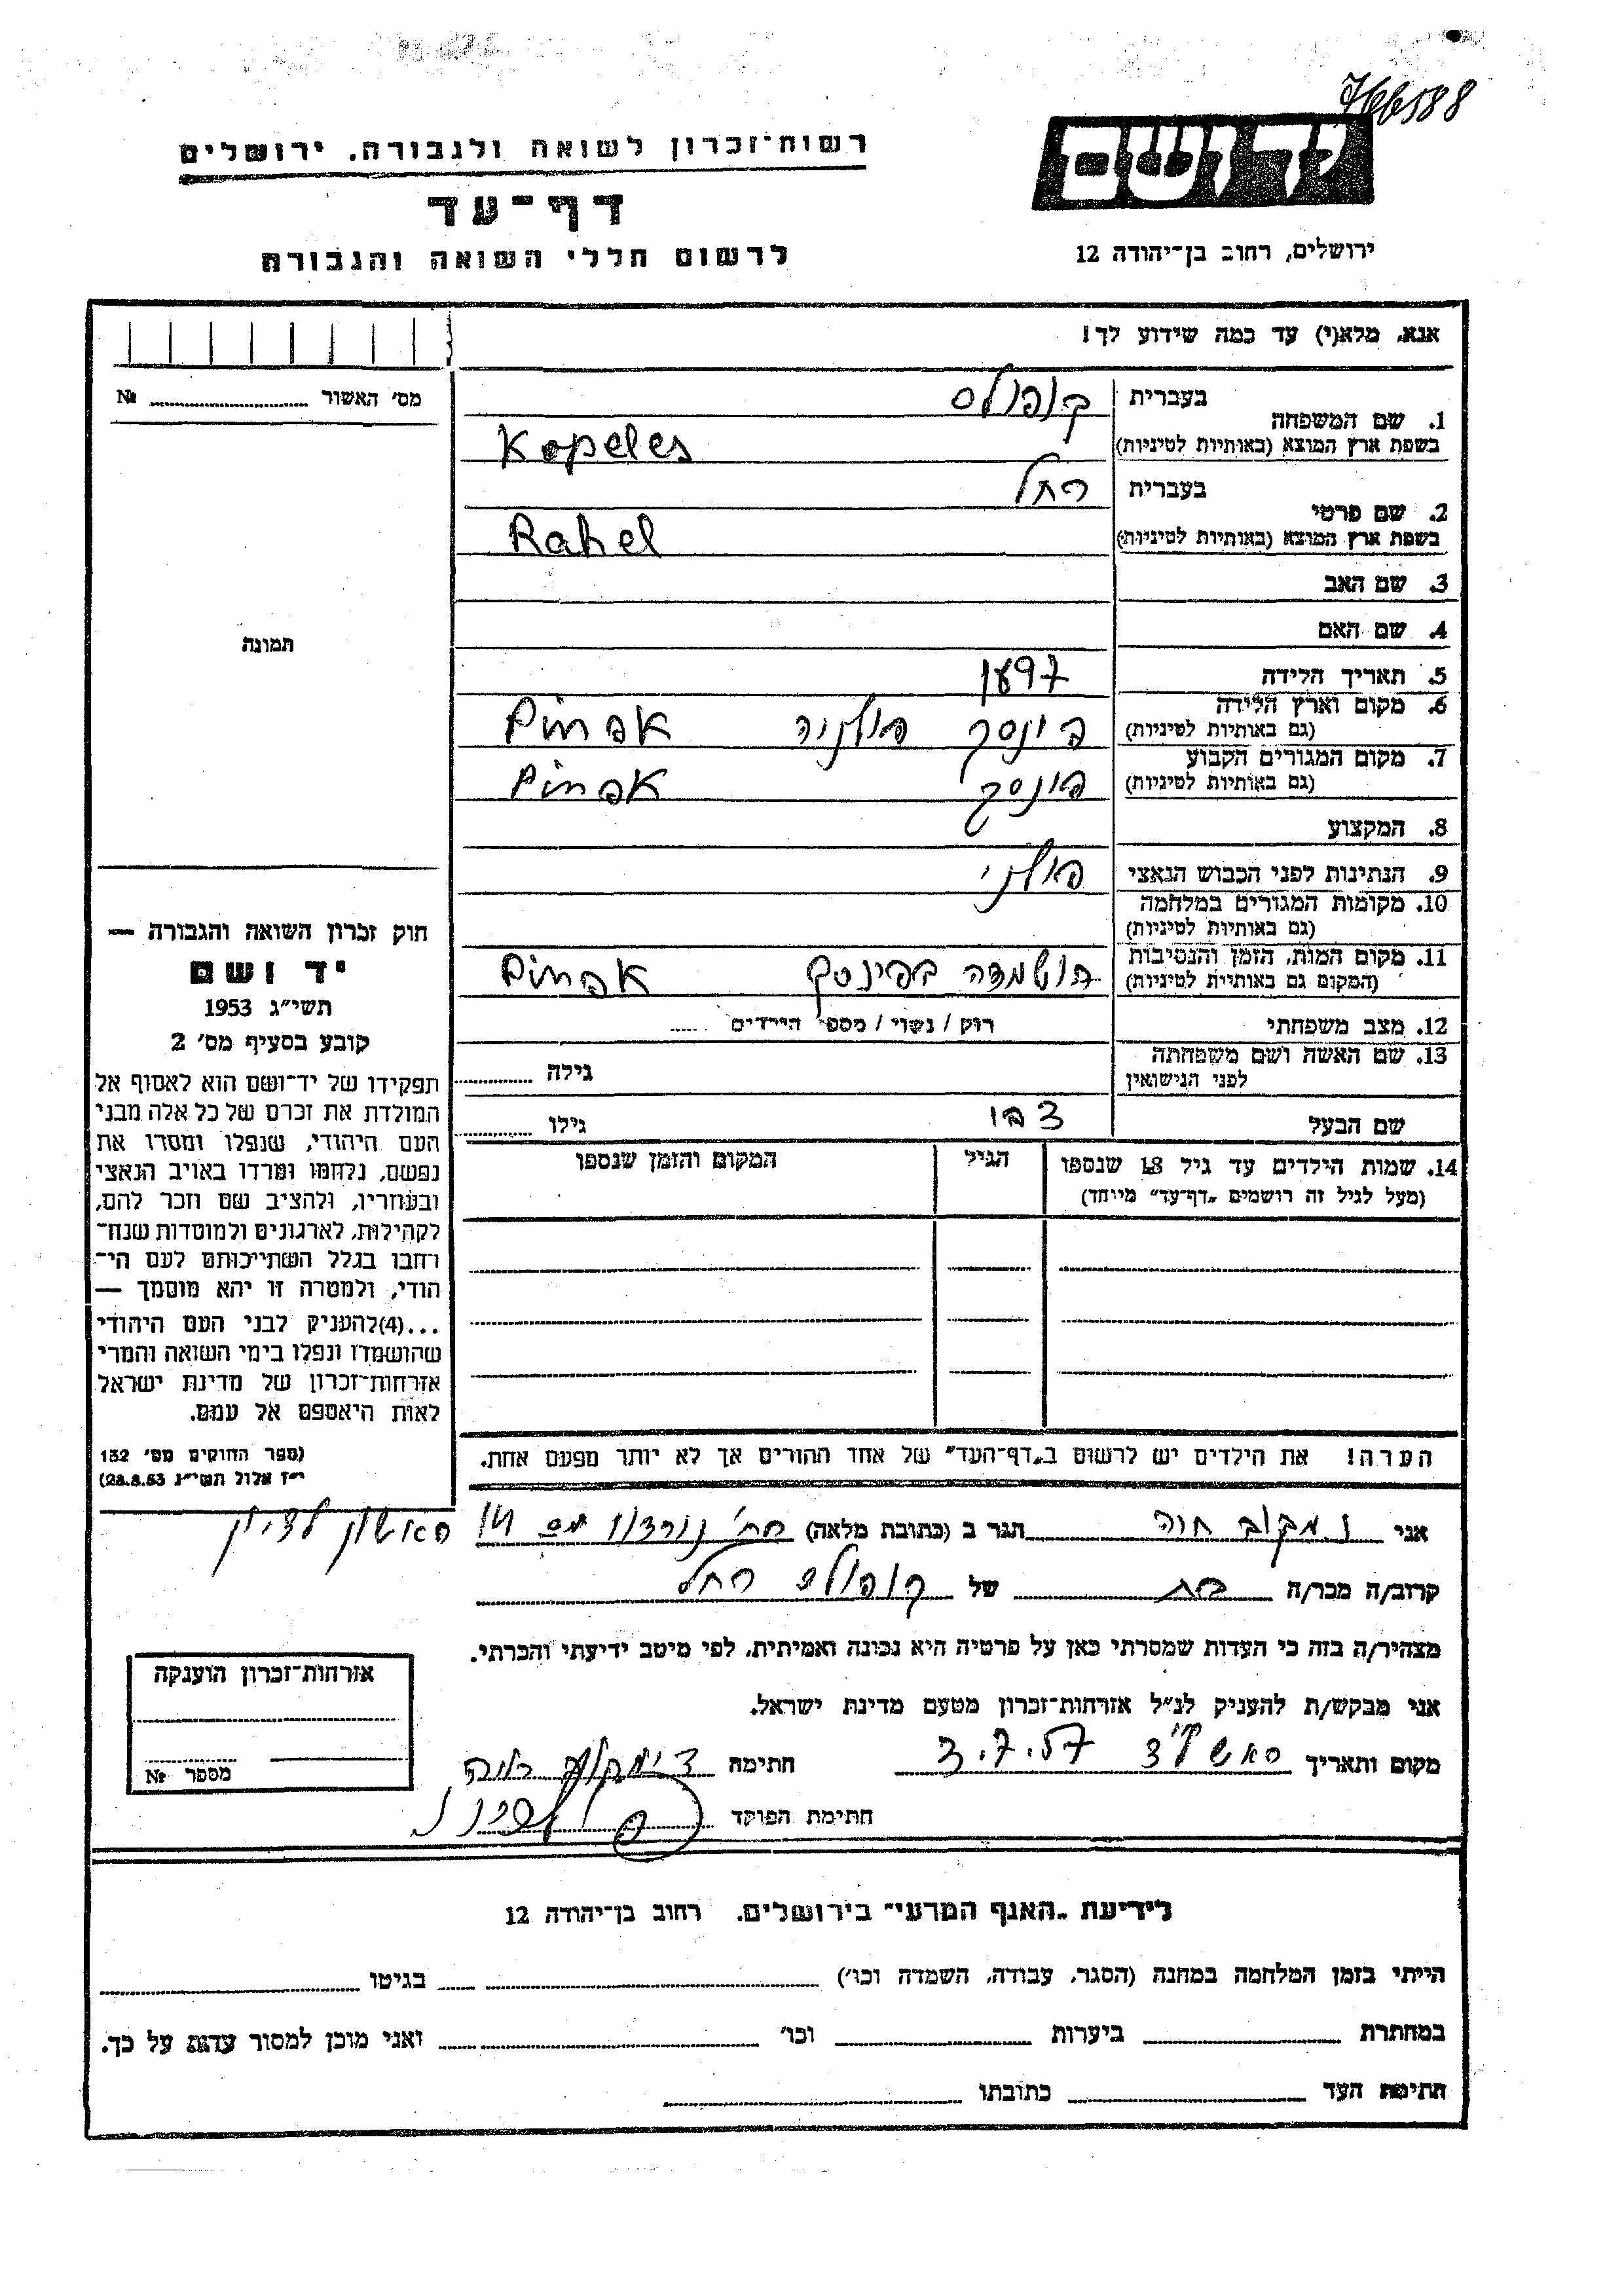 766588
יד ושם
ירושלים, רחוב בן־יהודה 12
רשות־זכרון לשואה ולגבורה, ירושלים
דף־עד
לרשום חללי השואה והגבורה
אנא, מלא(י) עד כמה שידוע לך!
מס' האשור № 
1. שם המשפחה
בעברית קופולס
בשפת ארץ המוצא (באותיות לטיניות) Kopeles
2. שם פרטי
בעברית רחל
בשפת ארץ המוצא (באותיות לטיניות) Rahel
3. שם האב
4. שם האם
5. תאריך הלידה
6. מקום וארץ הלידה פינסק פולניה
(גם באותיות לטיניות)
7. מקום המגורים הקבוע פינסק
(גם באותיות לטיניות)
8. המקצוע
9. הנתינות לפני הכבוש הנאצי פולני
10. מקומות המגורים במלחמה
(גם באותיות לטיניות)
11. מקום המות, הזמן והנסיבות הושמדה בפינסק
(המקום גם באותיות לטיניות)
12. מצב משפחתי רוק / נשוי / מספר הילדים .....
13. שם האשה ושם משפחתה
לפני הנישואין גילה
שם הבעל גילו
14. שמות הילדים עד גיל 18 שנספו
(מעל לגיל זה רושמים „דף־עד" מיוחד)
הגיל
המקום והזמן שנספו
הערה! את הילדים יש לרשום ב„דף־העד" של אחד ההורים אך לא יותר מפעם אחת.
תמונה
חוק זכרון השואה והגבורה —
יד ושם
תשי"ג 1953
קובע בסעיף מס' 2
תפקידו של יד־ושם הוא לאסוף אל
המולדת את זכרם של כל אלה מבני
העם היהודי, שנפלו ומסרו את
נפשם, נלחמו ומרדו באויב הנאצי
ובעוזריו, ולהציב שם וזכר להם,
לקהילות, לארגונים ולמוסדות שנח־
רבו בגלל השתייכותם לעם הי־
הודי, ולמטרה זו יהא מוסמך —
...(4)להעניק לבני העם היהודי
שהושמדו ונפלו בימי השואה והמרי
אזרחות־זכרון של מדינת ישראל
לאות היאספם אל עמם.
(ספר החוקים מס' 132
י"ז אלול תשי"ג 28.8.53)
אני חוה הגר ב (כתובת מלאה) רח' נורדוי מס 14 ראשון לציון
קרוב/ה מכר/ה בת של קופולס רחל
מצהיר/ה בזה כי העדות שמסרתי כאן על פרטיה היא נכונה ואמיתית, לפי מיטב ידיעתי והכרתי.
אני מבקש/ת להעניק לנ"ל אזרחות־זכרון מטעם מדינת ישראל.
מקום ותאריך ראשל"צ 3.7.57 חתימה
חתימת הפוקד
אזרחות־זכרון הוענקה
מספר №
לידיעת „האגף המדעי" בירושלים, רחוב בן־יהודה 12
הייתי בזמן המלחמה במחנה (הסגר, עבודה, השמדה וכו') בגיטו
במחתרת ביערות וכו' ואני מוכן למסור עדות על כך.
חתימת העד כתובתו